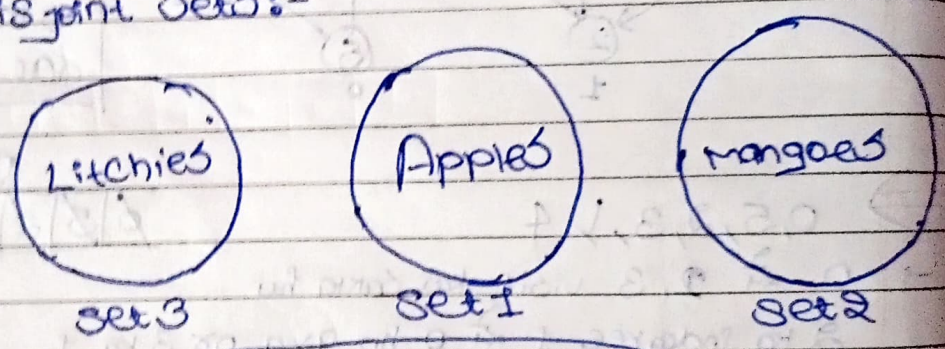 isjoint sets:-
Litchies Apples mangoes
set3 set1 set2